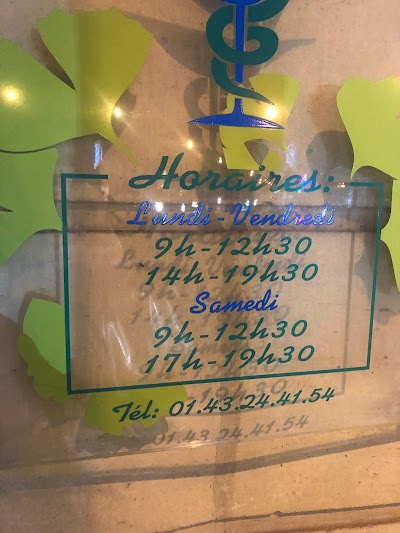 Horaires:
Lundi - Vendredi
9h-12h30
14h-19h30
Samedi
9h-12h30
17h-19h30
Tél: 01.43.24.41.54